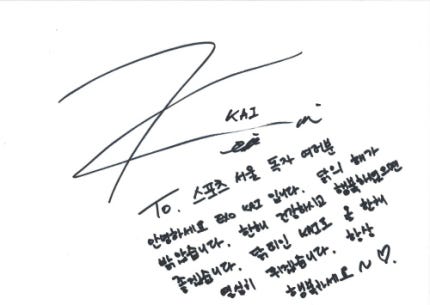 KAI
To. 스포츠 서울 독자 여러분
안녕하세요 EXO KAI 입니다. 닭의 해가
밝았습니다. 한해 건강하시고 행복하셨으면
좋겠습니다. 닭띠인 KAI도 올 한해
열심히 뛰겠습니다. 항상
행복하세요~♡.